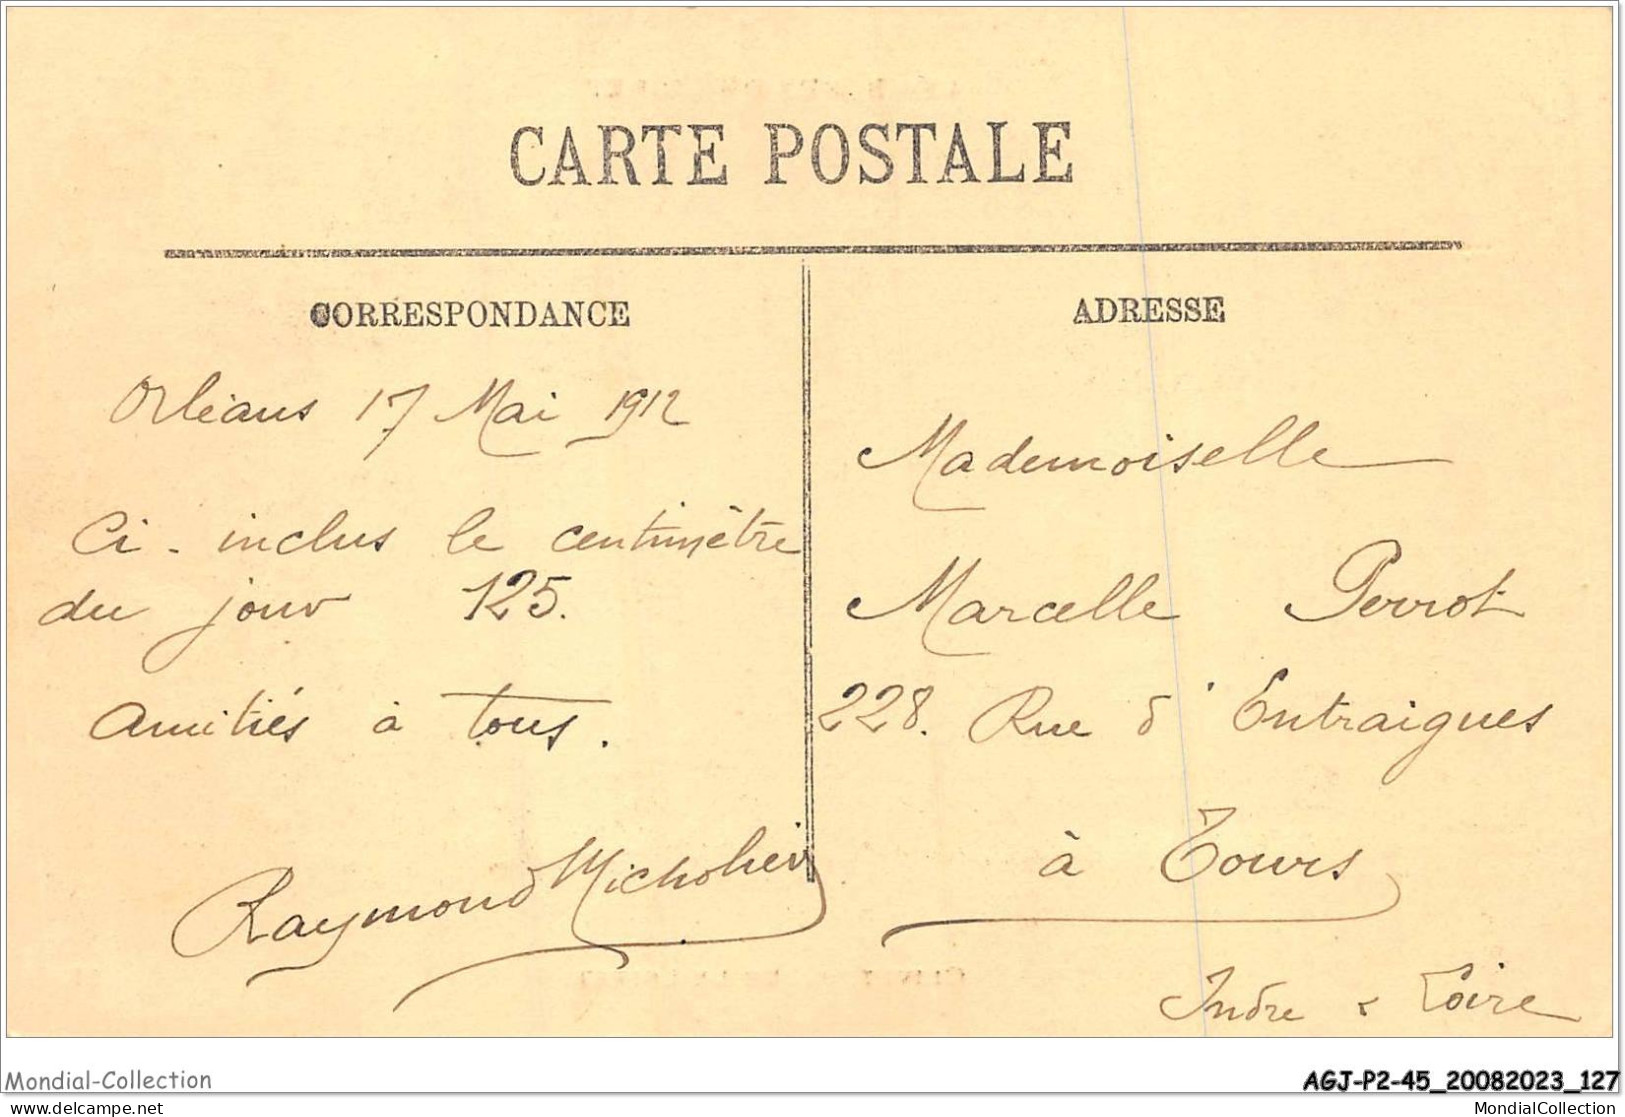 CARTE POSTALE
CORRESPONDANCE
Orléans 17 Mai 1912
Ci-inclus le centimètre
du jour 125.
Amitiés à tous.
Raymond
ADRESSE
Mademoiselle
Marcelle Perrot
228. Rue d'Entraigues
à Tours
Indre & Loire
Mondial-Collection
delcampe.net
AGJ-P2-45_20082023_127
MondialCollection